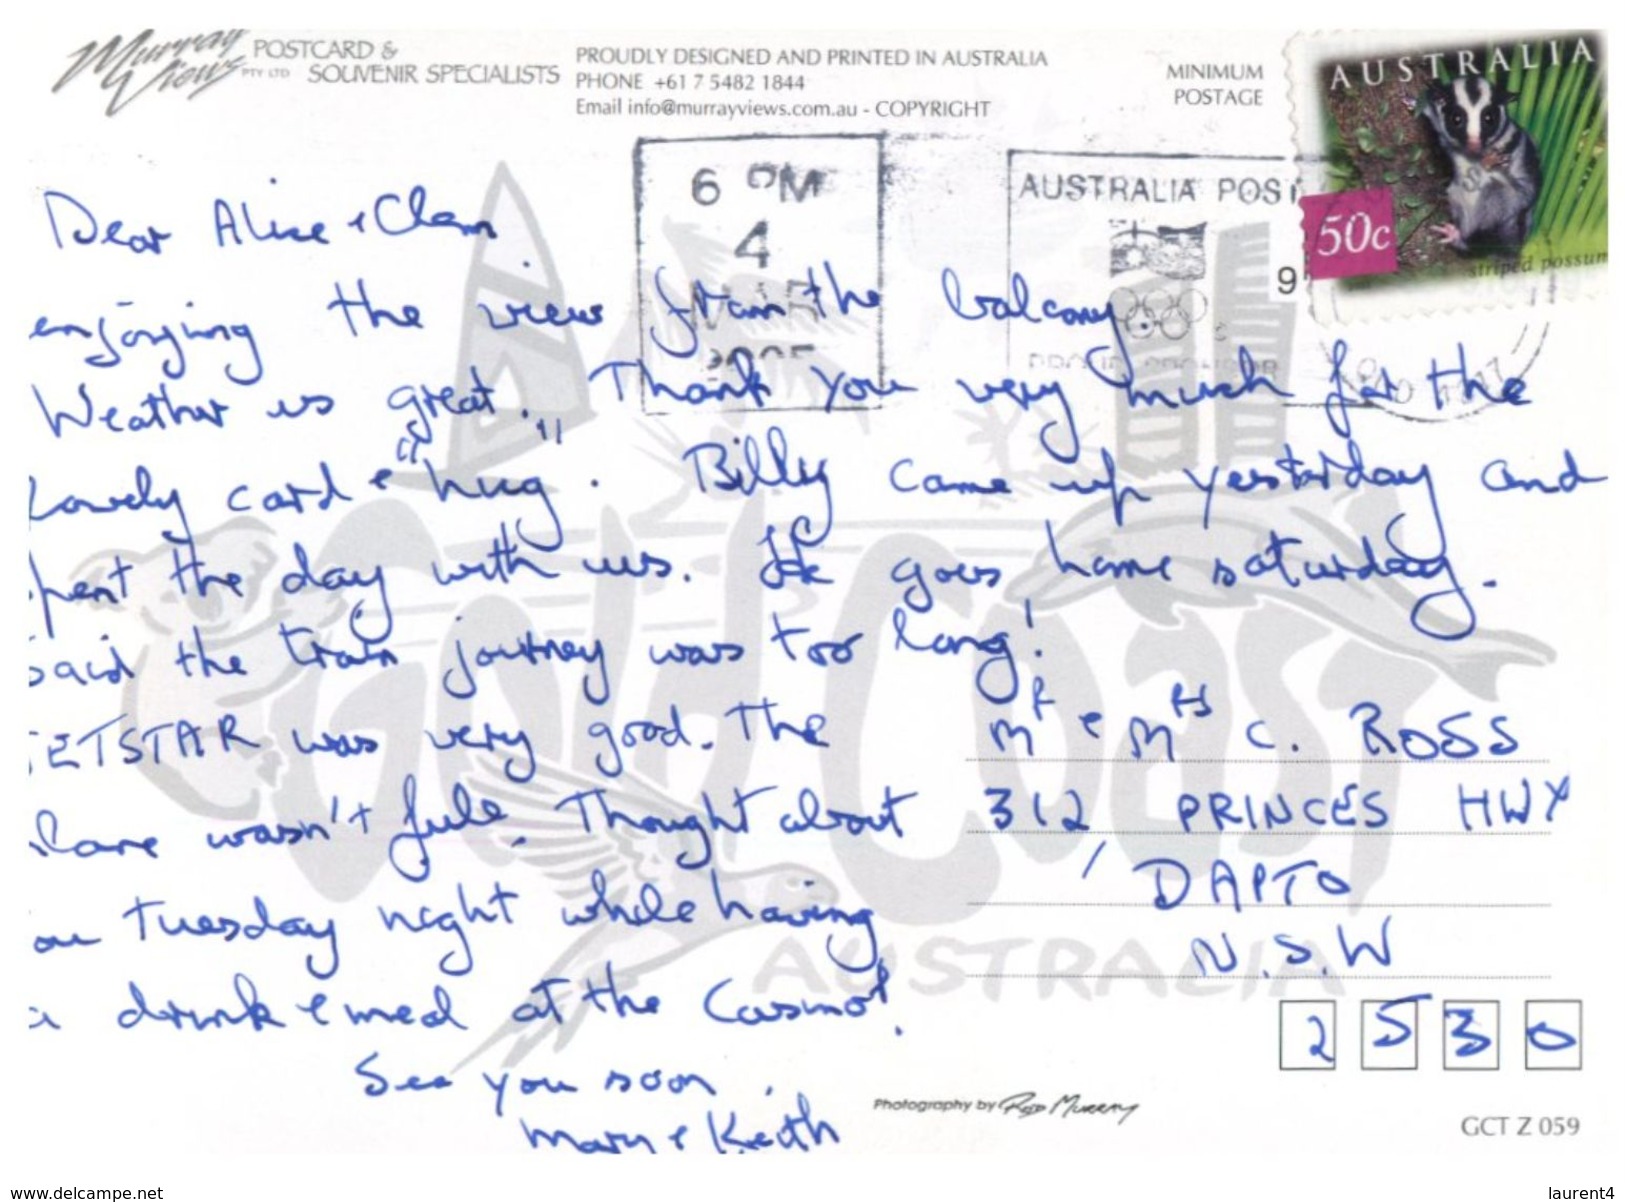 Murray Views PTY LTD POSTCARD & SOUVENIR SPECIALISTS
PROUDLY DESIGNED AND PRINTED IN AUSTRALIA
PHONE +61 7 5482 1844
Email info@murrayviews.com.au - COPYRIGHT
MINIMUM
POSTAGE
AUSTRALIA
50c
striped possum
6 PM
4
MAR
2005
AUSTRALIA POST
9
Dear Alice & Clem
enjoying the view from the balcony.
Weather is great. Thank you very much for the
Lovely card & "hug". Billy came up yesterday and
pent the day with us. He goes home saturday.
Said the train journey was too long!
JETSTAR was very good. The
plane wasn't full. Thought about
ou Tuesday night while having
a drink & meal at the Casino!
See you soon.
Mary & Keith
Mr & Mrs C. ROSS
312 PRINCES HWY
DAPTO
N.S.W
2530
Gold Coast
AUSTRALIA
Photography by Rod Murray
GCT Z 059
www.delcampe.net
laurent4